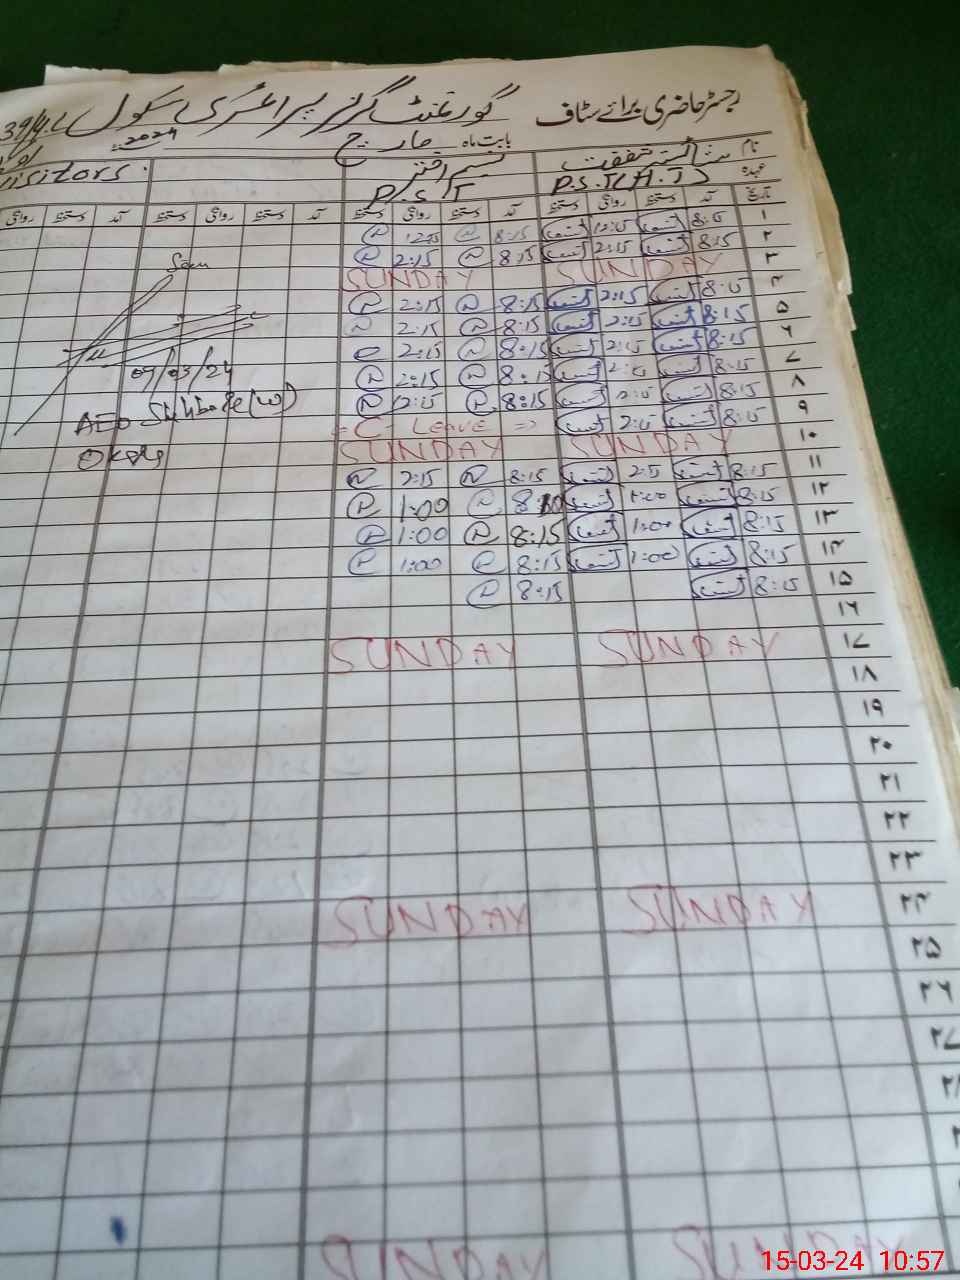 رجسٹر حاضری برائے سٹاف گورنمنٹ گرلز پرائمری سکول 39/4.L
بابت ماہ مارچ 2024
نام شائستہ شفقت نسیم اختر
عہدہ P.S.T(H.T) P.S.T Visitors.
تاریخ آمد دستخط روانگی دستخط آمد دستخط روانگی دستخط آمد دستخط روانگی دستخط آمد دستخط روانگی
۱ 8:15 12:15 8:15 12:15
۲ 8:15 2:15 8:15 2:15
۳ SUNDAY SUNDAY
۴ 8:15 2:15 8:15 2:15
۵ 8:15 2:15 8:15 2:15
۶ 8:15 2:15 8:15 2:15
۷ 8:15 2:15 8:15 2:15
۸ 8:15 12:15 8:15 12:15
۹ 8:15 2:15 C- LEAVE
۱۰ SUNDAY SUNDAY
09/03/24
AEO
Okara
۱۱ 8:15 2:15 8:15 2:15
۱۲ 8:15 1:00 1:00
۱۳ 8:15 1:00 8:15 1:00
۱۴ 8:15 1:00 8:15 1:00
۱۵ 8:15 8:15
۱۶
۱۷ SUNDAY SUNDAY
۱۸
۱۹
۲۰
۲۱
۲۲
۲۳
۲۴ SUNDAY SUNDAY
۲۵
۲۶
۲۷
۲۸
SUNDAY SUNDAY
15-03-24 10:57